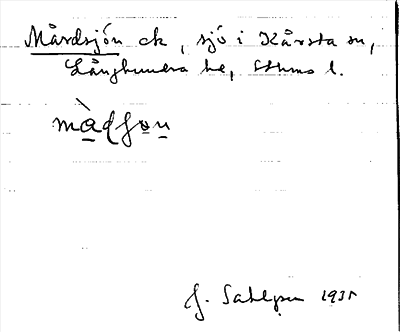 Mårdsjön ek, sjö i Kårsta sn,
Långhundra hd, Sthms l.
màdʃɷn
J. Sahlgren 1931